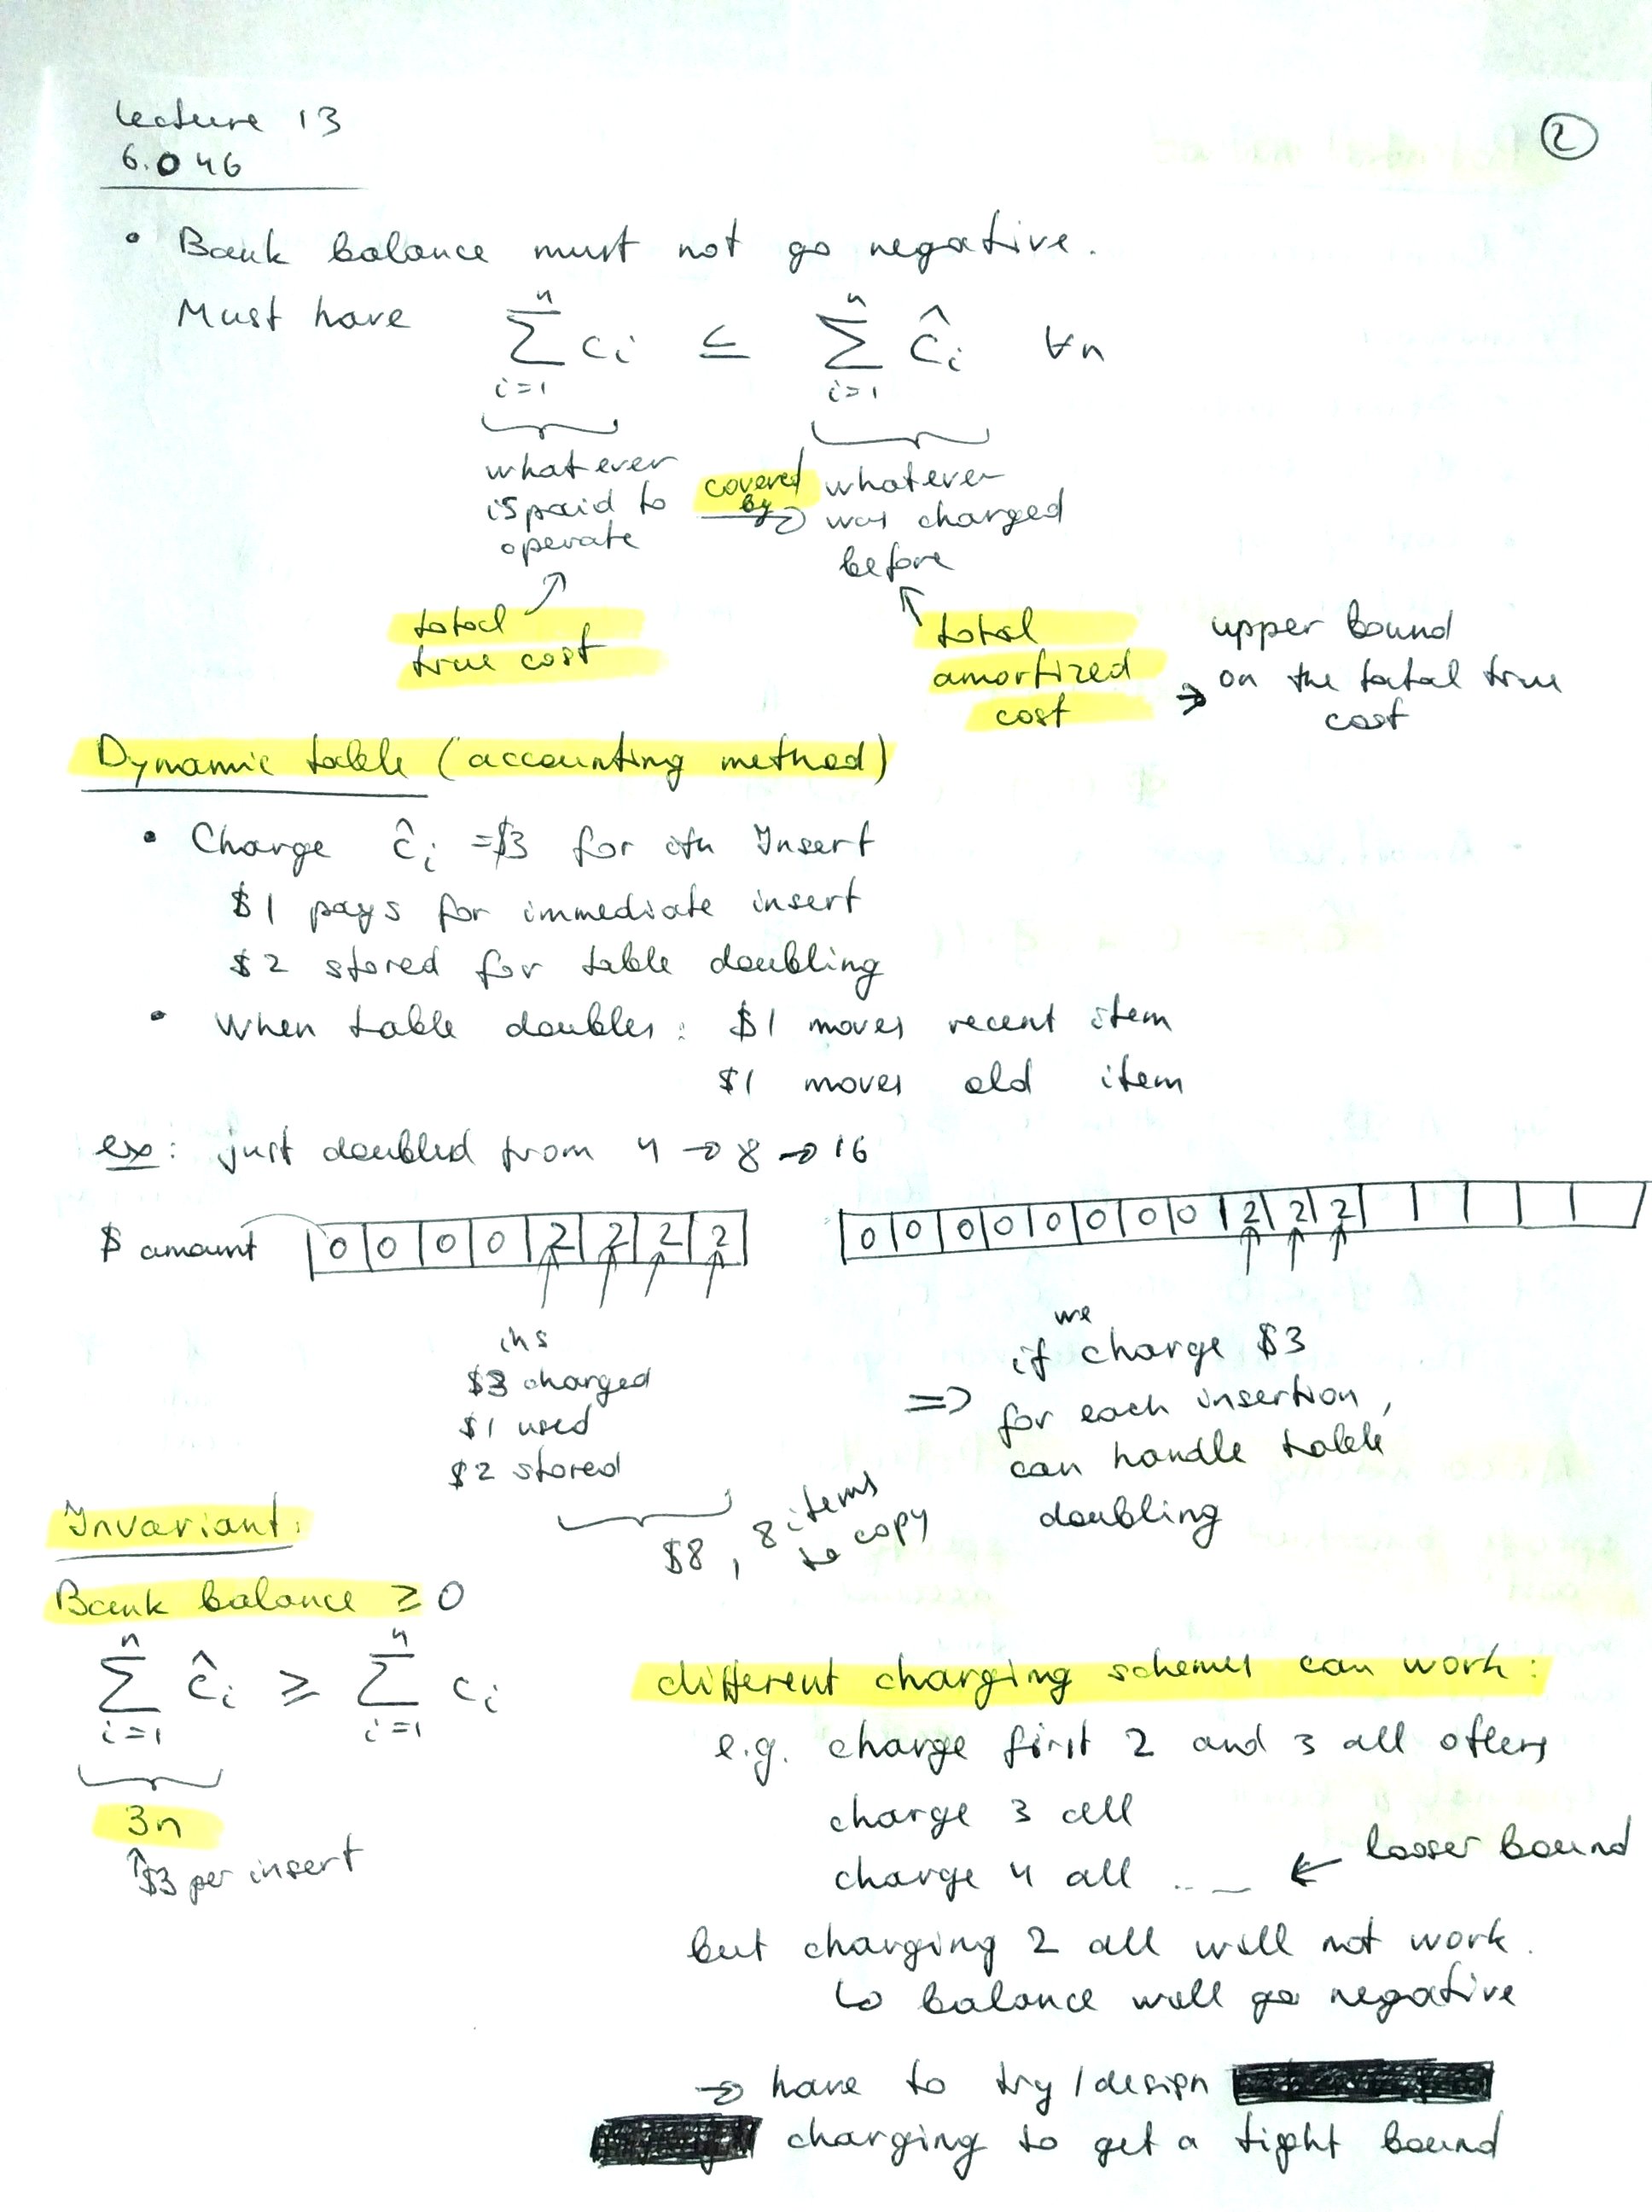 Lecture 13
6.046
2
• Bank balance must not go negative.
Must have ∑_{i=1}^{n} c_i ≤ ∑_{i=1}^{n} ĉ_i ∀n
whatever is paid to operate
covered by →
whatever was charged before
total true cost
total amortized cost
→ upper bound on the total true cost
Dynamic table (accounting method)
• Charge ĉ_i = $3 for ith Insert
$1 pays for immediate insert
$2 stored for table doubling
• When table doubles: $1 moves recent item
$1 moves old item
ex: just doubled from 4 → 8 → 16
$ amount 0 0 0 0 2 2 2 2
0 0 0 0 0 0 0 0 2 2 2
ins
$3 charged
$1 used
$2 stored
$8, 8 items to copy
⇒ if we charge $3
for each insertion,
can handle table
doubling
Invariant:
Bank balance ≥ 0
∑_{i=1}^{n} ĉ_i ≥ ∑_{i=1}^{n} c_i
3n
↑ $3 per insert
different charging schemes can work:
e.g. charge first 2 and 3 all others
charge 3 all
charge 4 all .. _ ← looser bound
but charging 2 all will not work.
↳ balance will go negative
→ have to try / design
charging to get a tight bound